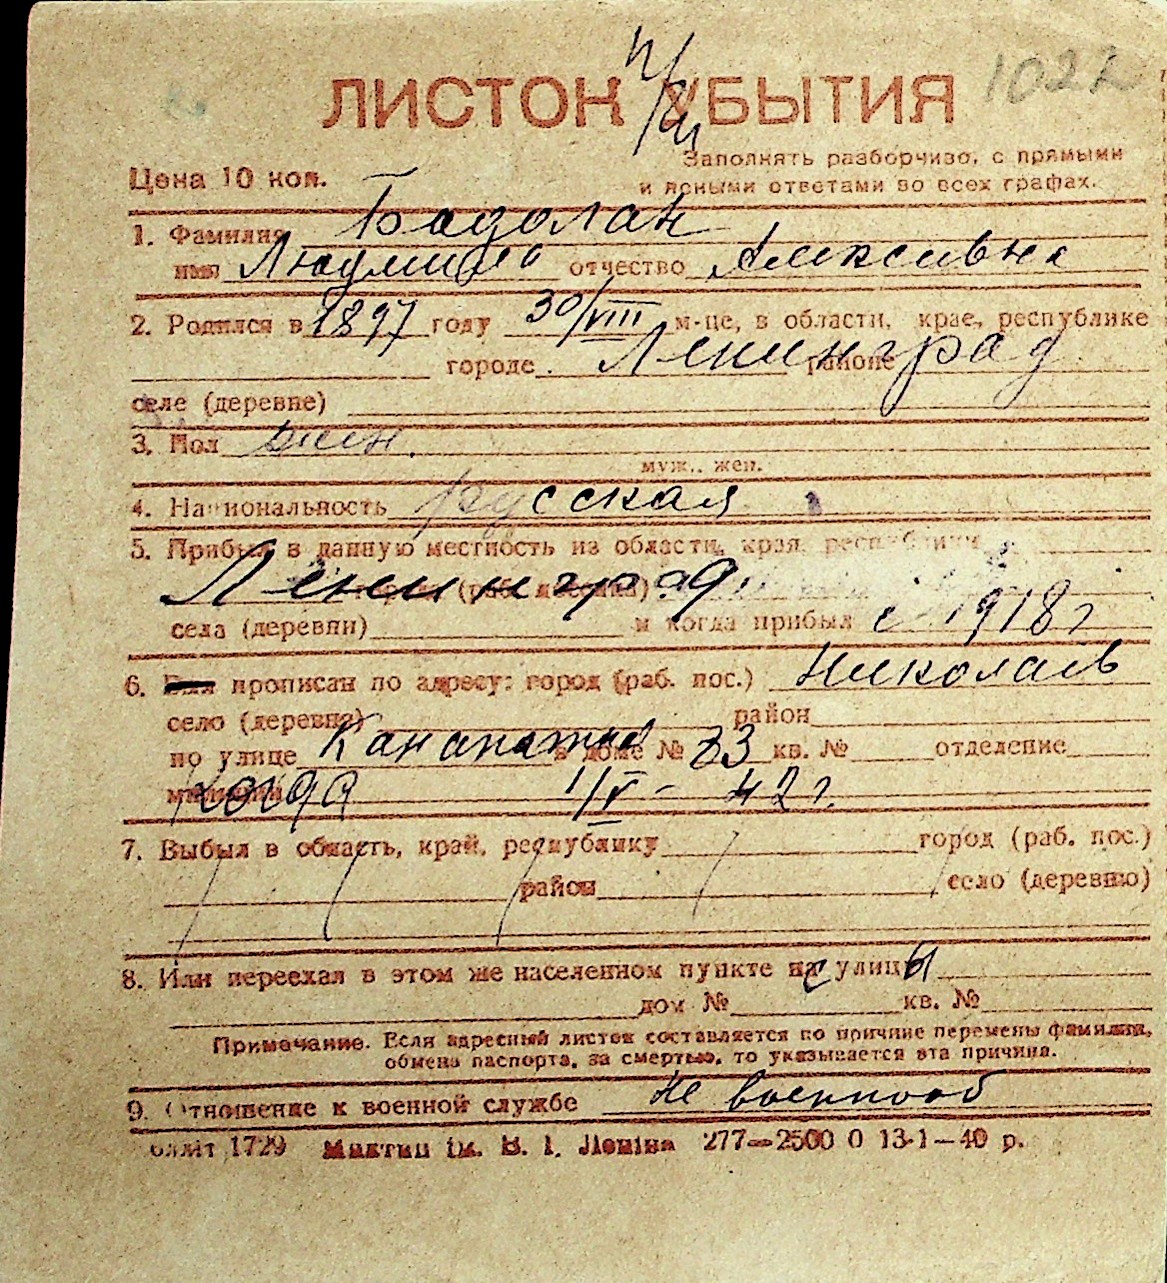 1022
ЛИСТОК УБЫТИЯ
Цена 10 коп.
Заполнять разборчиво, с прямыми
и ясными ответами во всех графах.
1. Фамилия Бадолан
имя Людмила отчество Алексивна
2. Родился в 1897 году 30/VIII м-це, в области, крае, республике
городе Ленинград районе
селе (деревне)
3. Пол жен.
муж., жен.
4. Национальность русская
5. Прибыл в данную местность из области, края, республики
Ленинград (раб. поселка)
села (деревни) и когда прибыл с 1918 г
6. прописан по адресу: город (раб. пос.) Николаев
село (деревня) район
по улице в доме № 83 кв. № отделение
милиции когда 1/V - 42 г.
7. Выбыл в область, край, республику город (раб. пос.)
район село (деревню)
8. Или переехал в этом же населенном пункте с улицы
дом № кв. №
Примечание. Если адресный листок составляется по причине перемены фамилии,
обмена паспорта, за смертью, то указывается эта причина.
9. Отношение к военной службе не военнооб
1729 им. В. І. Леніна 277—2500 0 13-1—40 р.